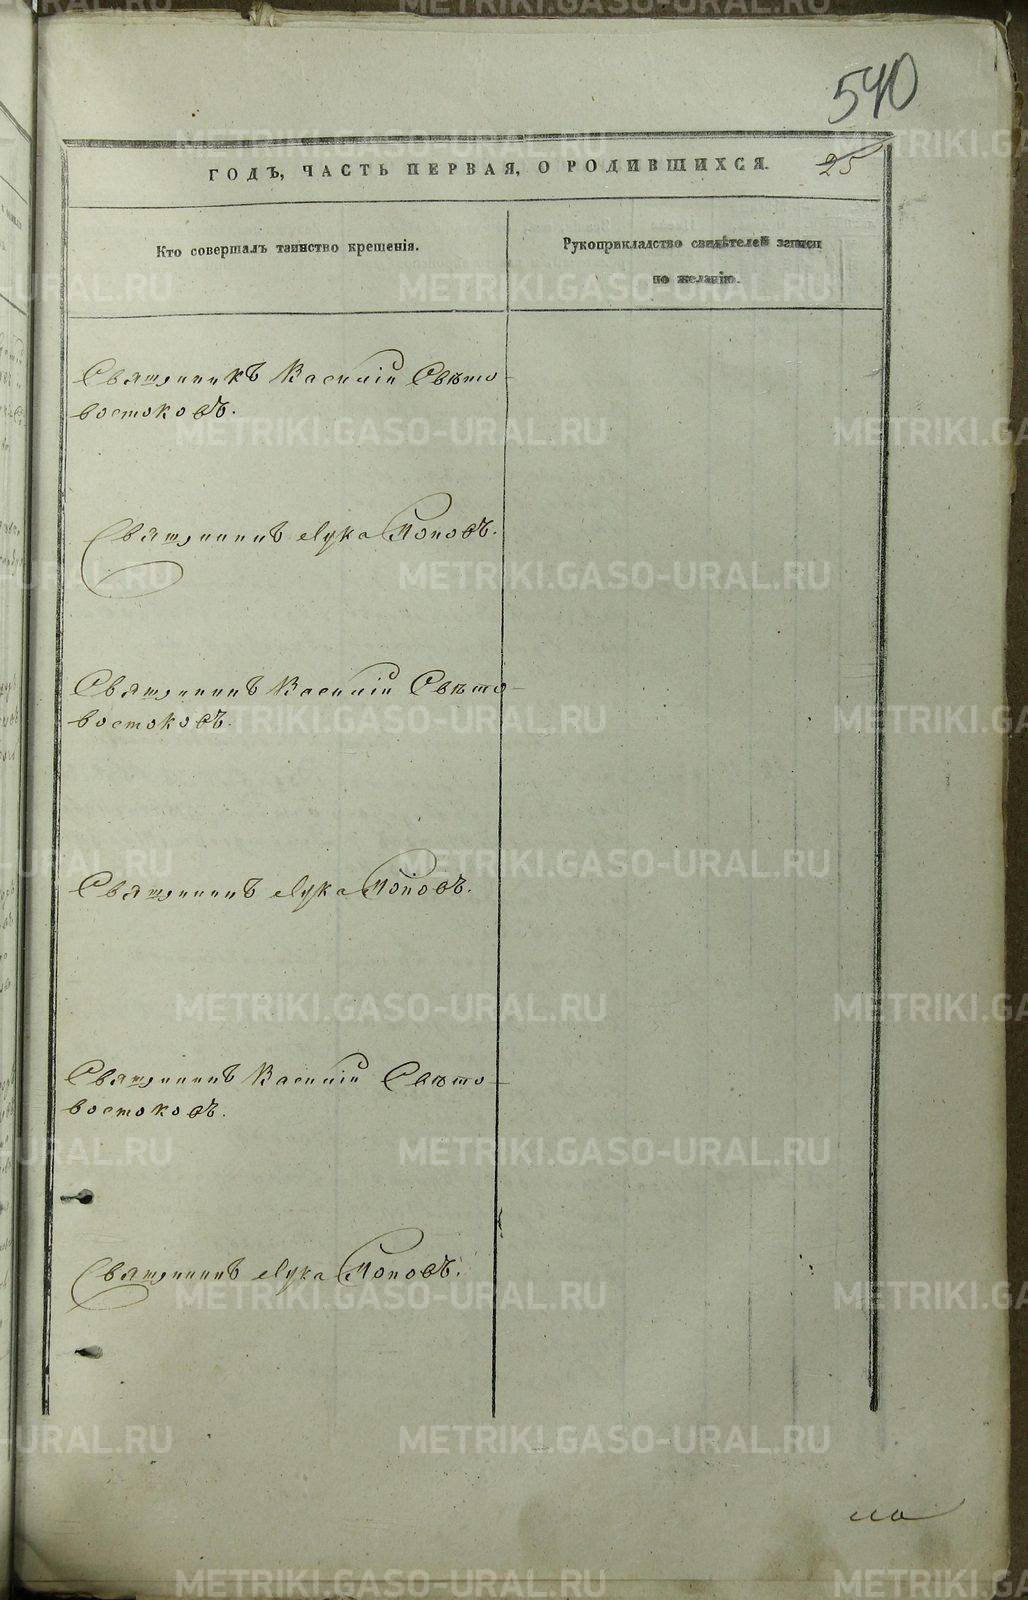 540
ГОДЪ, ЧАСТЬ ПЕРВАЯ, О РОДИВШИХСЯ.
25
Кто совершалъ таинство крещенія.
Рукоприкладство свидѣтелей записи
по желанію.
Священникъ Василій Свѣто-
востоковъ.
Священникъ Лука Поповъ.
Священникъ Василій Свѣто-
востоковъ.
Священникъ Лука Поповъ.
Священникъ Василій Свѣто-
востоковъ.
Священникъ Лука Поповъ.
METRIKI.GASO-URAL.RU